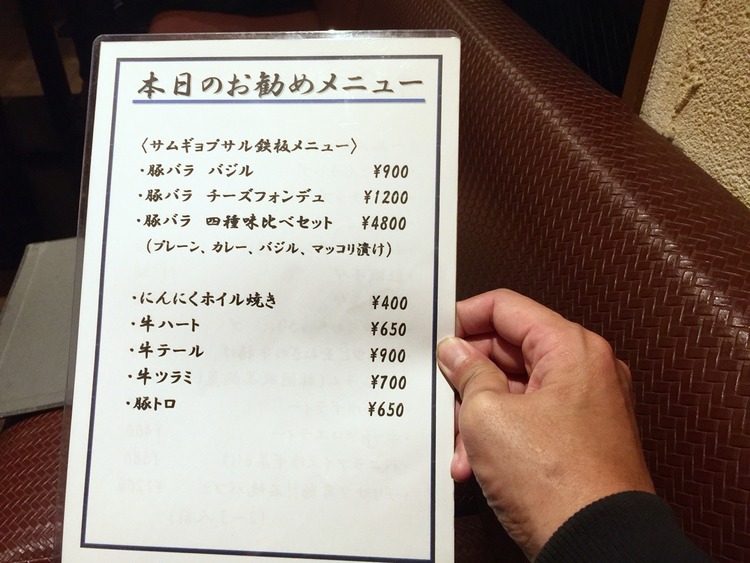 本日のお勧めメニュー
〈サムギョプサル鉄板メニュー〉
・豚バラ バジル ¥900
・豚バラ チーズフォンデュ ¥1200
・豚バラ 四種味比べセット ¥4800
(プレーン、カレー、バジル、マッコリ漬け)
・にんにくホイル焼き ¥400
・牛ハート ¥650
・牛テール ¥900
・牛ツラミ ¥700
・豚トロ ¥650